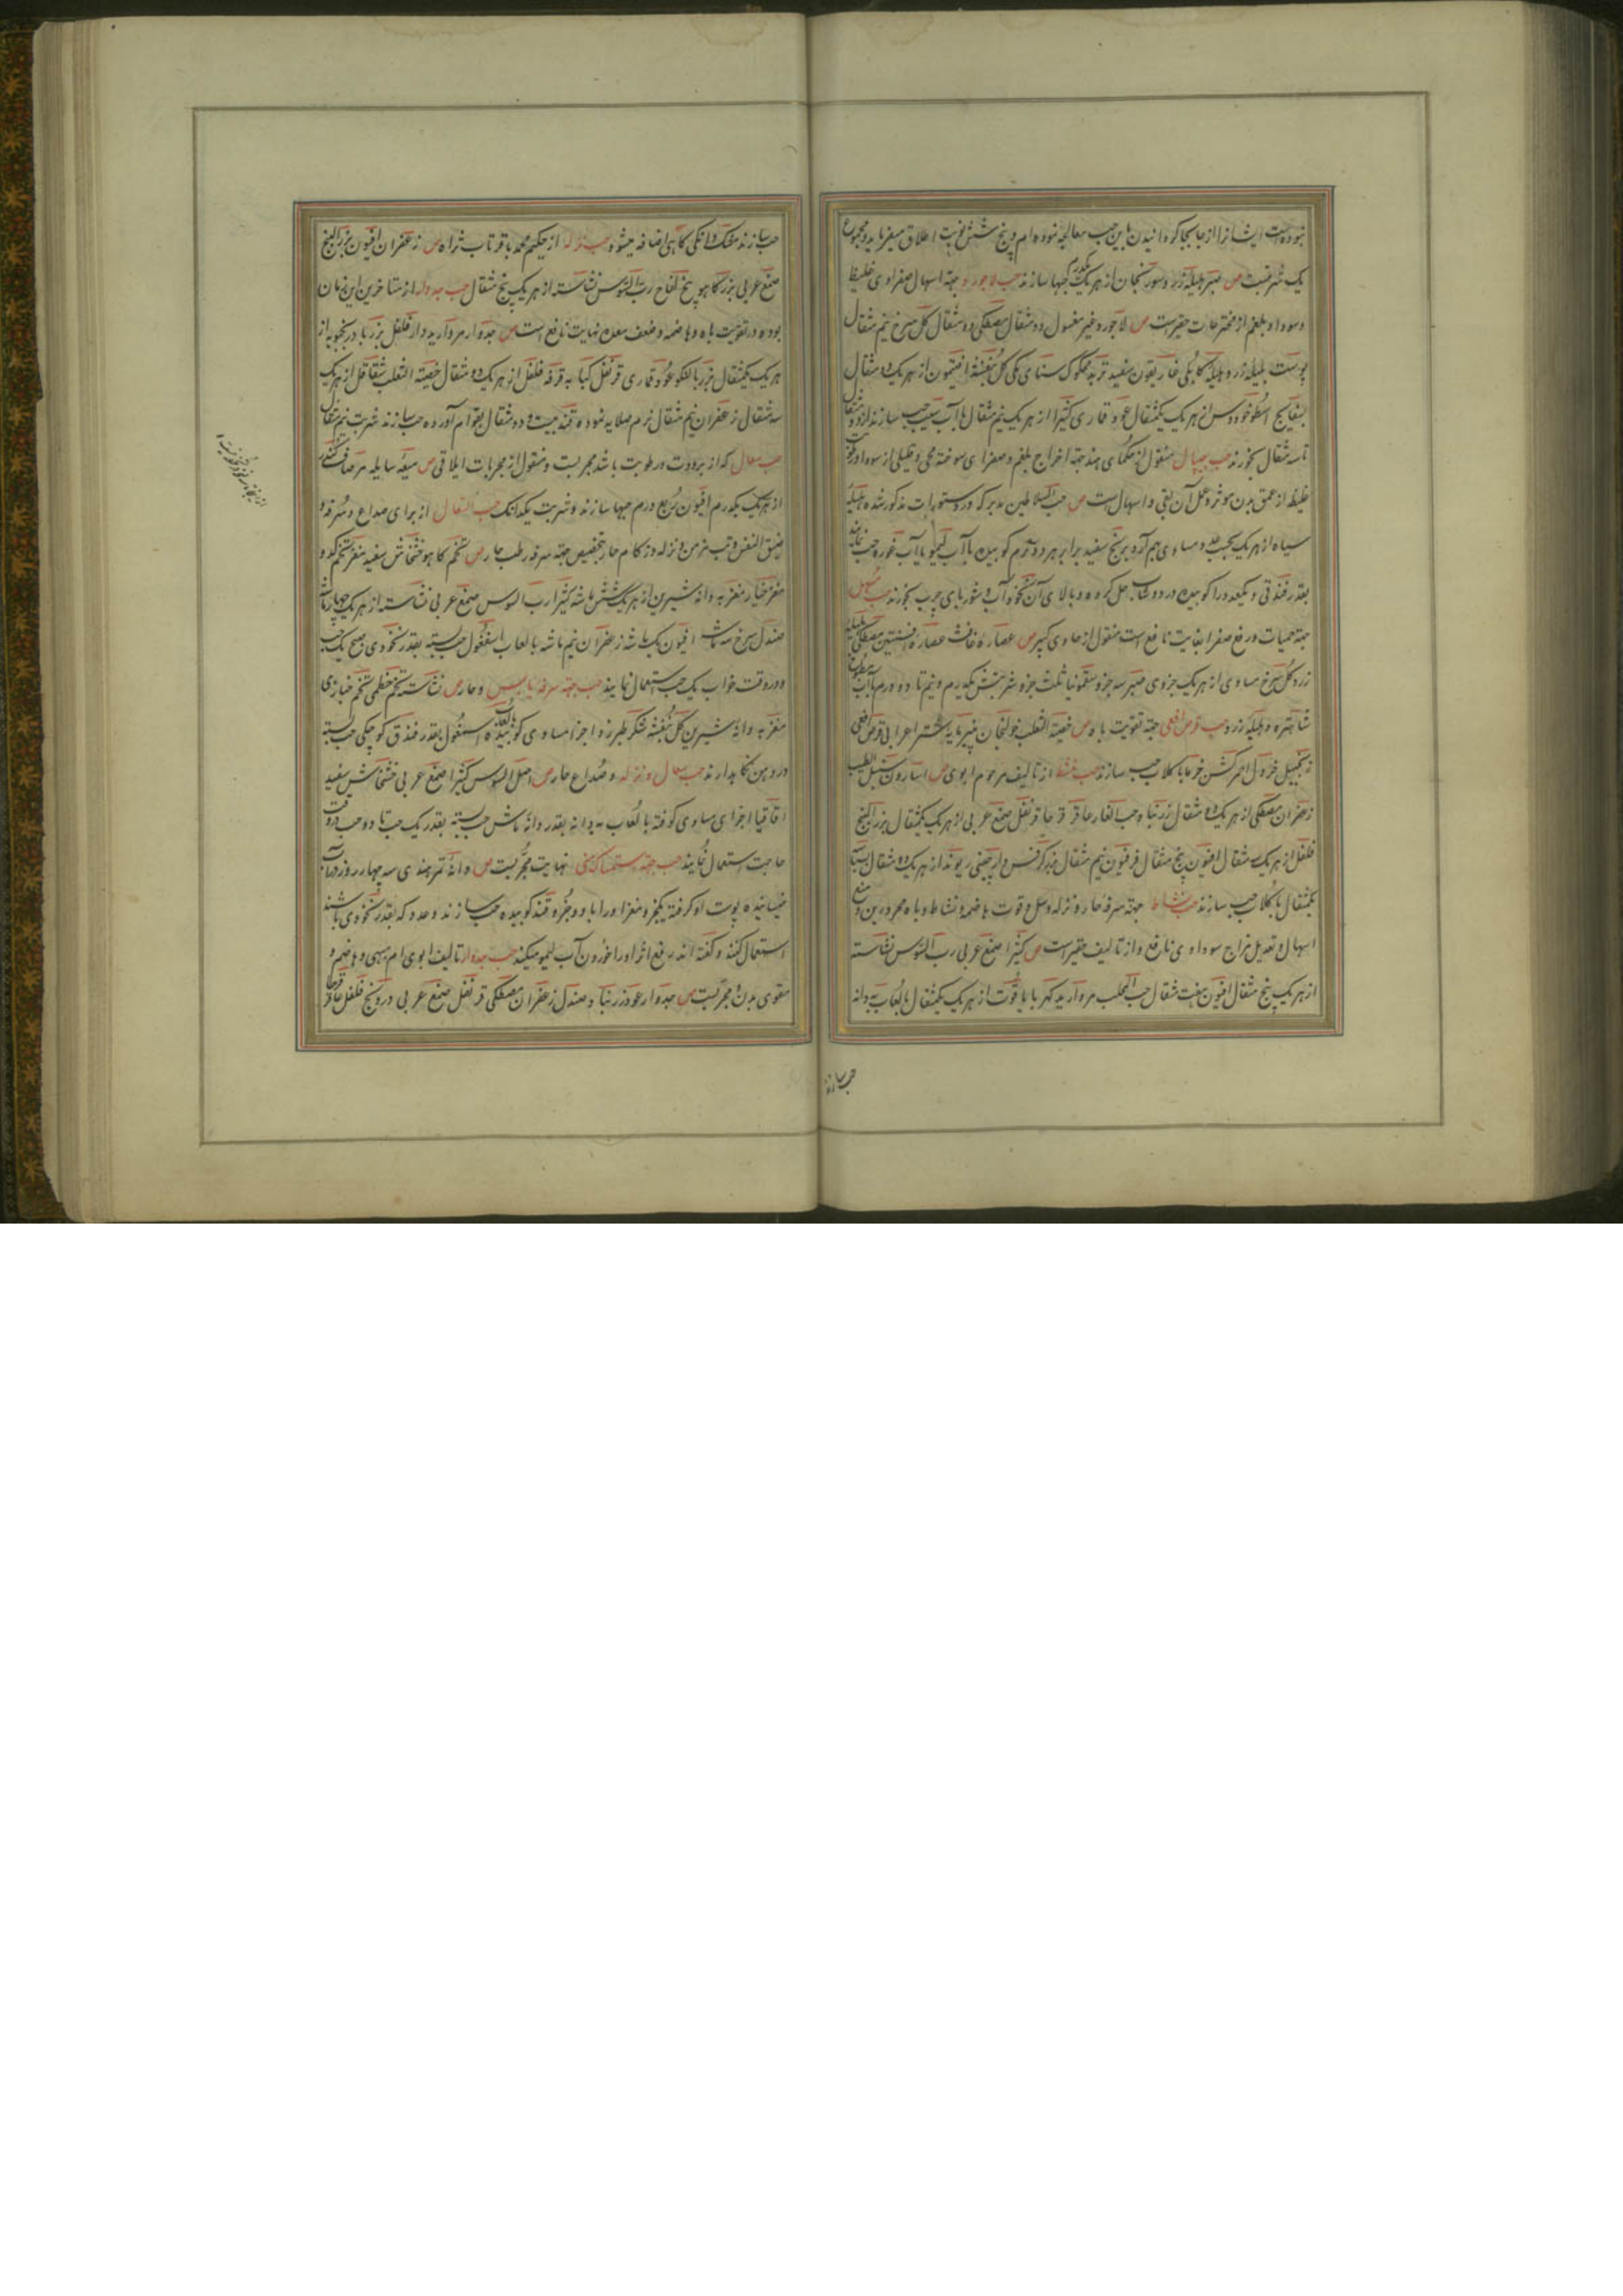 نبوده است ایشانرا از جا بجا کردانیدن باین حب معالجه نموده ام و پنج شش نوبت اطلاق میفرماید و مجموع
یک شربتست ص صبر هلیله زرد سورنجان از هر یک یکدرم حبها سازند حب لاجورد جهة اسهال صفراوی غلیظ
و سودا و بلغم از مخترعات حقیر است ص لاجورد غیر مغسول دو مثقال مصطکی دو مثقال کل سرخ نیم مثقال
پوست هلیله زرد و هلیله کابلی غاریقون سفید تربد محکوک سنای مکی کل بنفشه افتیمون از هر یک دو مثقال
بسفایج اسطوخودوس از هر یک یکمثقال عود قماری کثیرا از هر یک نیم مثقال با آب سیب حب سازند از دو مثقال
تا سه مثقال بخورند حب جیپال منقول از حکمای هند جهة اخراج بلغم و صفرای سوخته محی و قلیلی از سودا و رطوبت
غلیظ از عمق بدن موثر و عمل آن بقی و اسهال است ص حب السلاطین مدبر که در دستورات مذکور شده هلیله
سیاه از هر یک بحسب عدد مساوی هم آرد برنج سفید برابر هر دو نرم کوبیده با آب لیمو یا آب غوره حب نمایند
بقدر فندقی و یکعدد را کوبیده در دوشاب حل کرده و بالای آن نخود آب و شوربای چرب بخورند حب مسهل
جهة حمیات و رفع صفرا بغایت نافع است منقول از حاوی کبیر ص عصاره غافث عصاره افسنتین مصطکی هلیله
زرد کل سرخ مساوی از هر یک جزوی صبر سه جزو سقمونیا ثلث جزو شربتش یکدرم و نیم تا دو درم با آب مطبوخ
شاهتره و هلیله زرد حب قرص افعی جهة تقویت باه ص خصیة الثعلب خولنجان پنیرمایه شتر اعرابی قرص افعی
زنجبیل خردل احمر کشن خرما با کلاب حب سازند حب نشط از تالیف مرحوم ابوی ص اسارون سنبل الطیب
زعفران مصطکی از هر یک دو مثقال زرنباد حب الغار عاقرقرحا قرنفل صمغ عربی از هر یک یکمثقال بزر البنج
فلفل از هر یک مثقال افیون پنج مثقال فرفیون نیم مثقال بزر کرفس دارچینی ریوند از هر یک دو مثقال بسباسه
یکمثقال با کلاب حب سازند حب نشاط جهة سرفه حار و نزله و سل و قوت هاضمه و نشاط و باه محرورین و منع
اسهال و تعدیل مزاج سوداوی نافع و از تالیف حقیر است ص کثیرا صمغ عربی رب السوس نشاسته
از هر یک پنج مثقال افیون هفت مثقال حب المحلب مروارید کهربا یاقوت از هر یک یکمثقال با لعاب بهدانه
حب سازند
حب سازند مشک دانکی کاهی اضافه میشود حب نزله از حکیم محمد باقر تاب ثراه ص زعفران افیون بزر البنج
صمغ عربی بزر کاهو بیخ لفاح رب السوس نشاسته از هر یک پنج مثقال حب جدوار از متاخرین این زمان
بوده در تقویت باه و هاضمه و ضعف معده نهایت نافع است ص جدوار مروارید دارفلفل بزر بادرنجبویه از
هر یک یکمثقال بزر بالنکو عود قماری قرنفل کبابه قرفه فلفل از هر یک دو مثقال خصیة الثعلب شقاقل از هر یک
سه مثقال زعفران نیم مثقال نرم صلایه نموده قند بیست و دو مثقال بقوام آورده حب سازند شربت نیم مثقال
حب سعال که از برودت و رطوبت باشد مجربست و منقول از مجربات ایلاقی ص میعه سایله مر صاف کندر
از هر یک یکدرم افیون ربع درم حبها سازند و شربت یکدانک حب السعال از برای صداع و سرفه و
ضیق النفس و تب مزمن و نزله و زکام حار بتخصیص جهة سرفه رطب حار ص تخم کاهو خشخاش سفید مغز تخم کدو
مغز خیار مغز بهدانه شیرین از هر یک شش ماشه کثیرا رب السوس صمغ عربی نشاسته از هر یک چهار ماشه
صندل سرخ سه ماشه افیون یک ماشه زعفران نیم ماشه با لعاب اسفغول حب بسته بقدر نخودی صبح یک حب
و در وقت خواب یک حب استعمال نمایند حب جهة سرفه یابس و حار ص نشاسته تخم خطمی تخم خبازی
مغز بهدانه شیرین کل بنفشه شکر طبرزد اجزا مساوی کوبیده بلعاب اسفغول بقدر فندق کوچکی حب بسته
در دهن نکاهدارند حب سعال و نزله و صداع حار ص اصل السوس کثیرا صمغ عربی خشخاش سفید
اقاقیا اجزای مساوی کوفته با لعاب بهدانه بقدر دانه ماش حب بسته بقدر یک حب تا دو حب در وقت
حاجت استعمال نمایند حب جهة استمساک منی نهایت مجربست ص دانه تمر هندی سه چهار روز در آب
خیسانیده پوست او کرفته یکجزو مغز او را با دو جزو قند کوبیده حب سازند و عدد که بقدر نخودی باشد
استعمال کنند و کفته اند رفع اثر او را خوردن آب لیمو میکند حب جدوار تالیف ابوی ام مبهی و هاضم و
مقوی بدن و مجربست ص جدوار عود زرنباد صندل زعفران مصطکی قرنفل صمغ عربی درونج فلفل عاقرقرحا